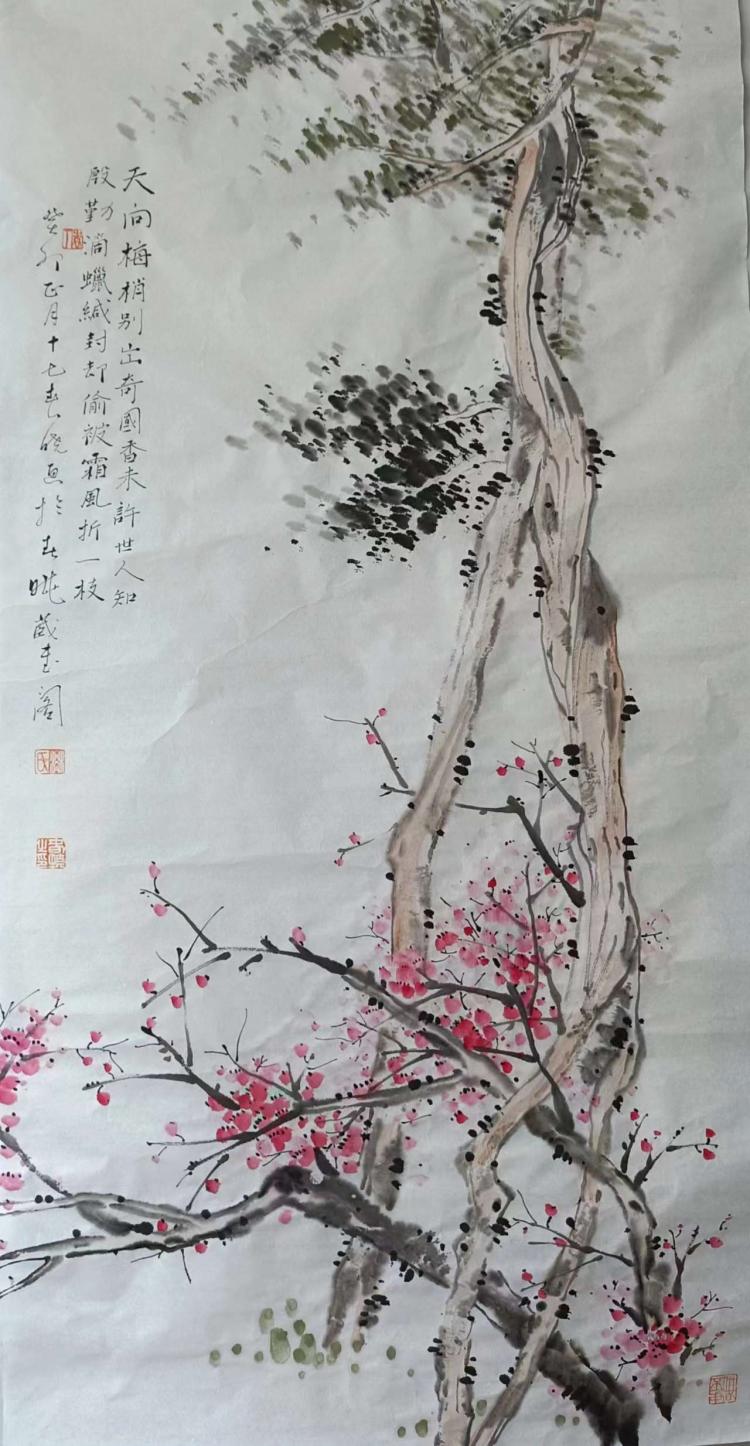 天向梅梢别出奇國香未許世人知
殷勤滴蠟緘封却偷被霜風折一枝
癸卯正月十七春曉畫於春曉藏畫閣